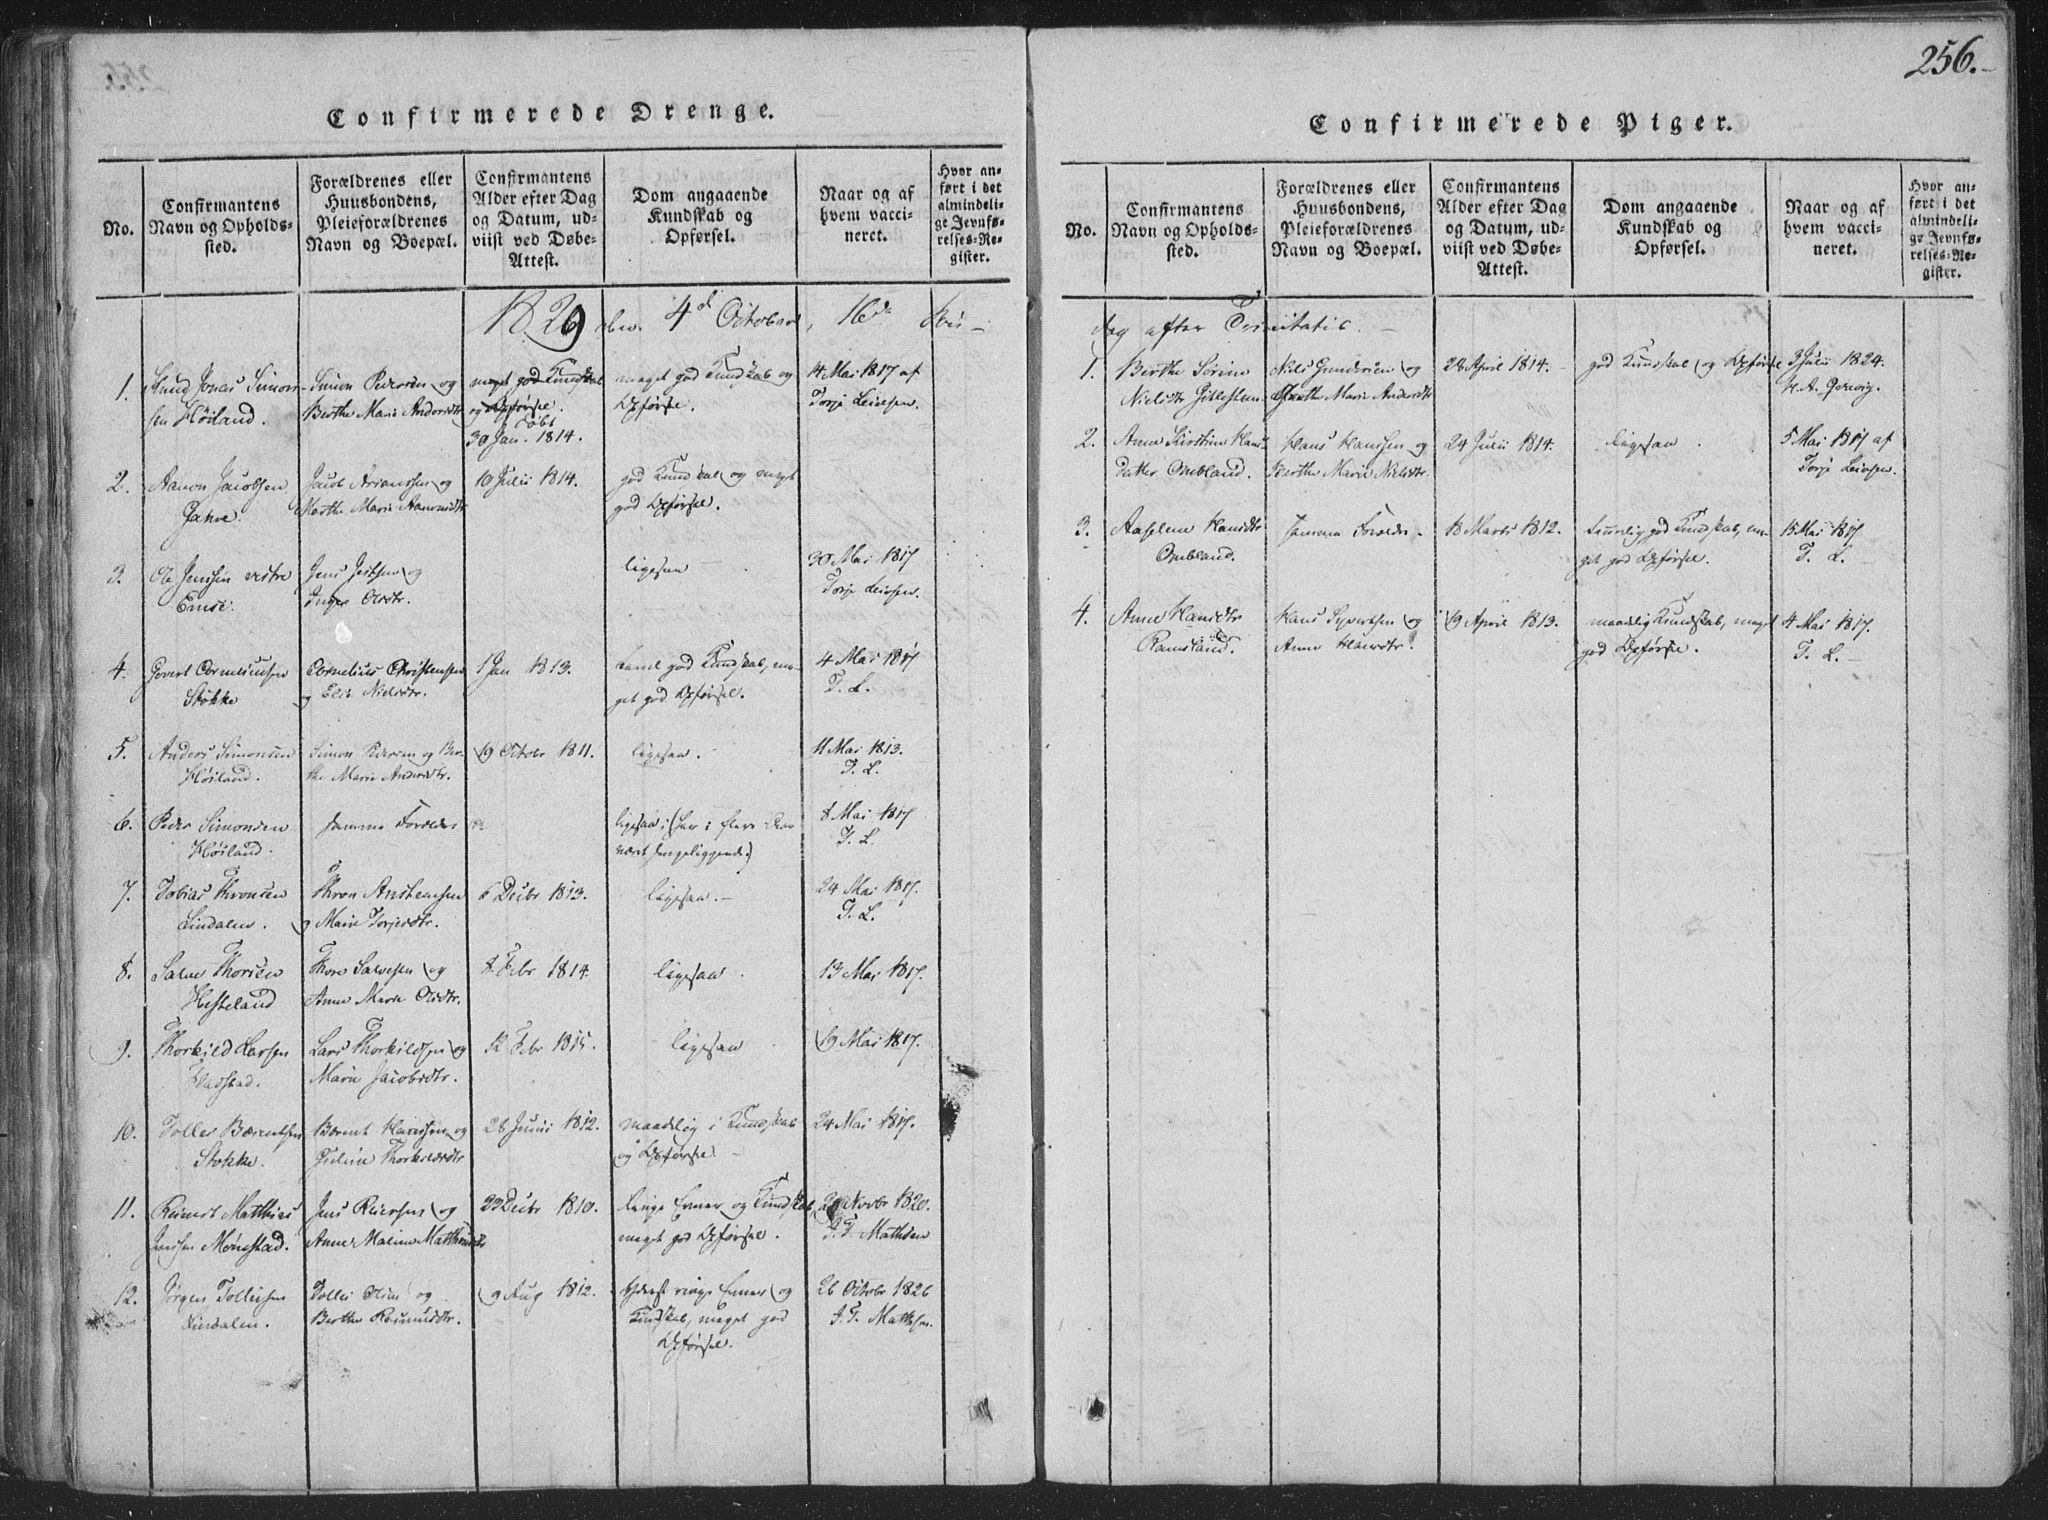 256.
Confirmerede Drenge.
No.
Confirmantens
Navn og Opholds-
sted.
Forældrenes eller
Huusbondens,
Pleieforældrenes
Navn og Boepæl.
Confirmantens
Alder efter Dag
og Datum, ud-
viist ved Døbe-
Attest.
Dom angaaende
Kundskab og
Opførsel.
Naar og af
hvem vacci-
neret.
Hvor an-
ført i det
almindeli-
ge Jevnfø-
relses-Re-
gister.
1829 den 4de October, 16de
1.
Knud Jonas Simon-
sen Høiland.
Simon Pedersen og
Berthe Marie Andersdtr
meget god Kundskab
og Opførsel.
født
30 Jan. 1814.
meget god Kundskab og
Opførsel.
14 Mai 1817 af
Torje Leivsen.
2.
Aanon Jacobsen
Jacob Arianssen og
Marthe Marie Aanonsdtr
10 Julii 1814.
god Kundskab og meget
god Opførsel.
3.
Ole Jenssen vestre
Emse.
Jens og
Inger Olsdtr.
ligesaa
30 Mai 1817
Torje Leivsen.
4.
Govert Corneliussen
Stokke
Cornelius Christensen
og Elie Nielsdtr.
1 Jan 1813.
god Kundskab, me-
get god Opførsel.
4 Mai 1817
T. L.
5.
Anders Simonsen
Høiland.
Simon Pedersen og Ber-
the Marie Andersdtr.
19 Octobr 1811.
ligesaa.
11 Mai 1813.
T. L.
6.
Peder Simonsen
Høiland.
samme Forældre
ligesaa (har i flere Aar
været sengeliggende.)
8 Mai 1817
T. L.
7.
Tobias Thronsen
Lindalen.
Thron Anstensen
og Marie Torjersdtr.
6 Decbr 1813.
ligesaa.
24 Mai 1817.
T. L.
8.
Salve Thorsen
Hesteland
Thore Salvesen og
Anne Marie Olsdtr.
8 Febr 1814.
ligesaa.
13 Mai 1817.
9.
Thorkild Larsen
Lars Thorkildsen og
Marie Jacobsdtr.
12 Febr 1815.
ligesaa
19 Mai 1817.
10.
Tollev Bærentsen
Stokke.
Bærent Hanssen og
Thorkildsdtr
28 Junii 1812.
maadelig i Kundskab
og Opførsel.
24 Mai 1817.
11.
Reinert Matthias
Jenssen Mønstad.
Jens Reiersen og
Anne Malene Matthiasdtr
23 Decbr 1810.
ringe Evner og Kundskab,
meget god Opførsel.
Novbr 1820.
J. T. Mathsen
12.
Jørgen Tollevsen
Lindalen.
Tollev Olsen og
Berthe Rasmusdtr.
9 Aug 1812.
yderst ringe Evner og
Kundskab, meget god
Opførsel.
26 Octobr 1826
J. T. Mathsen.
Confirmerede Piger.
No.
Confirmantens
Navn og Opholds-
sted.
Forældrenes eller
Huusbondens,
Pleieforældrenes
Navn og Boepæl.
Confirmantens
Alder efter Dag
og Datum, ud-
viist ved Døbe-
Attest.
Dom angaaende
Kundskab og
Opførsel.
Naar og af
hvem vacci-
neret.
Hvor an-
ført i det
almindeli-
ge Jevnfø-
relses-Re-
gister.
dag efter Trinitatis.
1.
Berthe Serine
Nielsdtr
Niels Gundersen og
Marie Andersdtr
28 April 1814.
god Kundskab og Opførsel
3 Julii 1824.
2.
Anne Kirstine Hans-
datter Ombland.
Hans Hanssen og
Berthe Marie Nielsdtr.
24 Julii 1814.
ligesaa.
5 Mai 1817 af
Torje Leivsen.
3.
Aaselene Hansdtr
Ombland.
samme Forældre.
18 Marts 1812.
temmelig god Kundskab, me-
get god Opførsel.
15 Mai 1817
T. L.
4.
Anne Hansdtr
Ramsland.
Hans Syvertsen og
Anne Hansdtr.
19 April 1813.
maadelig Kundskab, meget
god Opførsel.
4 Mai 1817.
T. L.